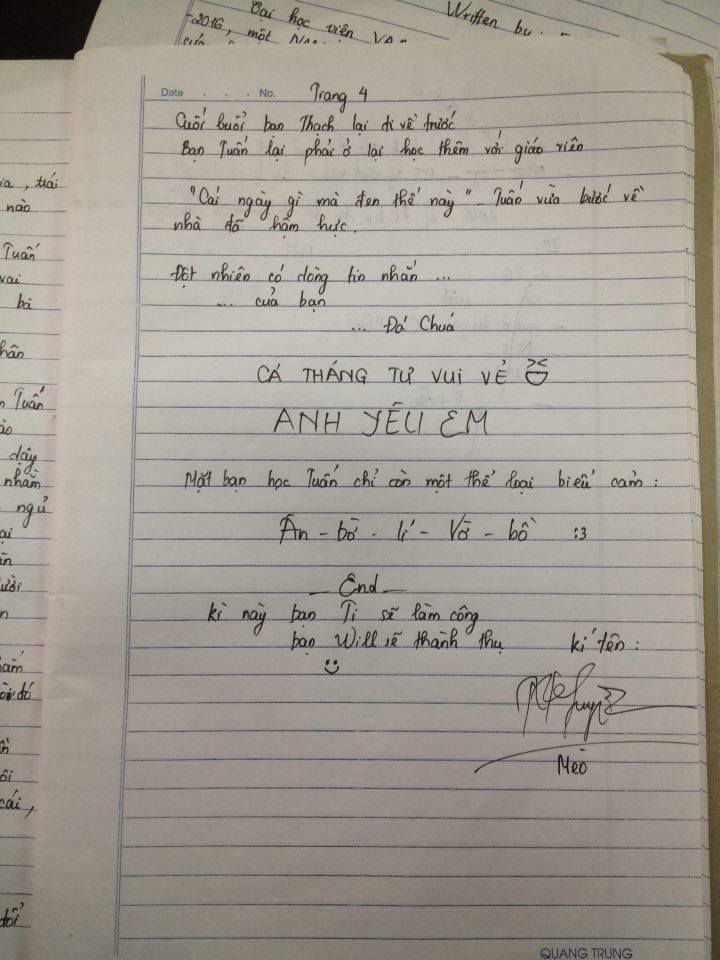 Đại học viên
Written by:
-2016, một
Date . . . No.
Trang 4
Cuối buổi bạn Thạch lại đi về trước
Bạn Tuấn lại phải ở lại học thêm với giáo viên
"Cái ngày gì mà đen thế này" - Tuấn vừa bước về
nhà đã hậm hực.
Đột nhiên có dòng tin nhắn ...
... của bạn
... Đá Chuá
CÁ THÁNG TƯ VUI VẺ
ANH YÊU EM
Mặt bạn học Tuấn chỉ còn một thể loại biểu cảm :
Ân - bờ - lí - Vờ - bồ :3
_ End _
kì này bạn Ti sẽ làm công
bạn Will sẽ thành thụ
kí tên :
Mèo
QUANG TRUNG
ia, trái
nào
Tuấn
vai
bà
hân
Tuấn
ào
dậy
nhằm
ngủ
ại
ười
n
ôi
cái,
đổi